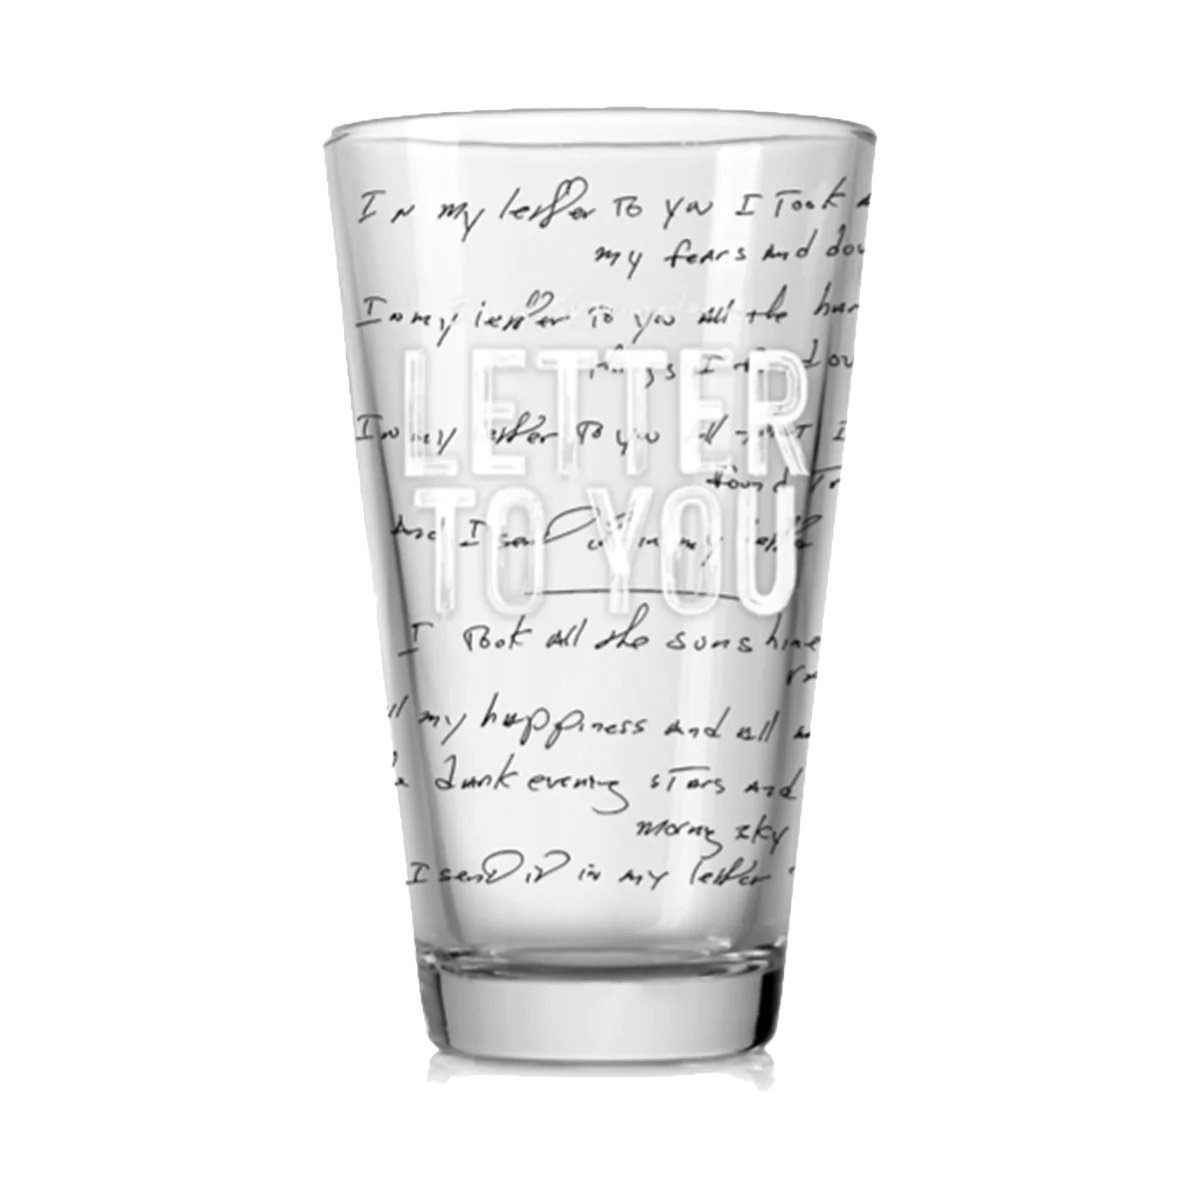 In my letter to you I Took
my fears and dou
In my letter to you all the har
things I found ou
LETTER
In my letter to you all that I
found Tr
TO YOU
And I send it in my letter
I Took all the sunshine
my happiness and all
dark evening sTars and
morng sky
I send it in my letter